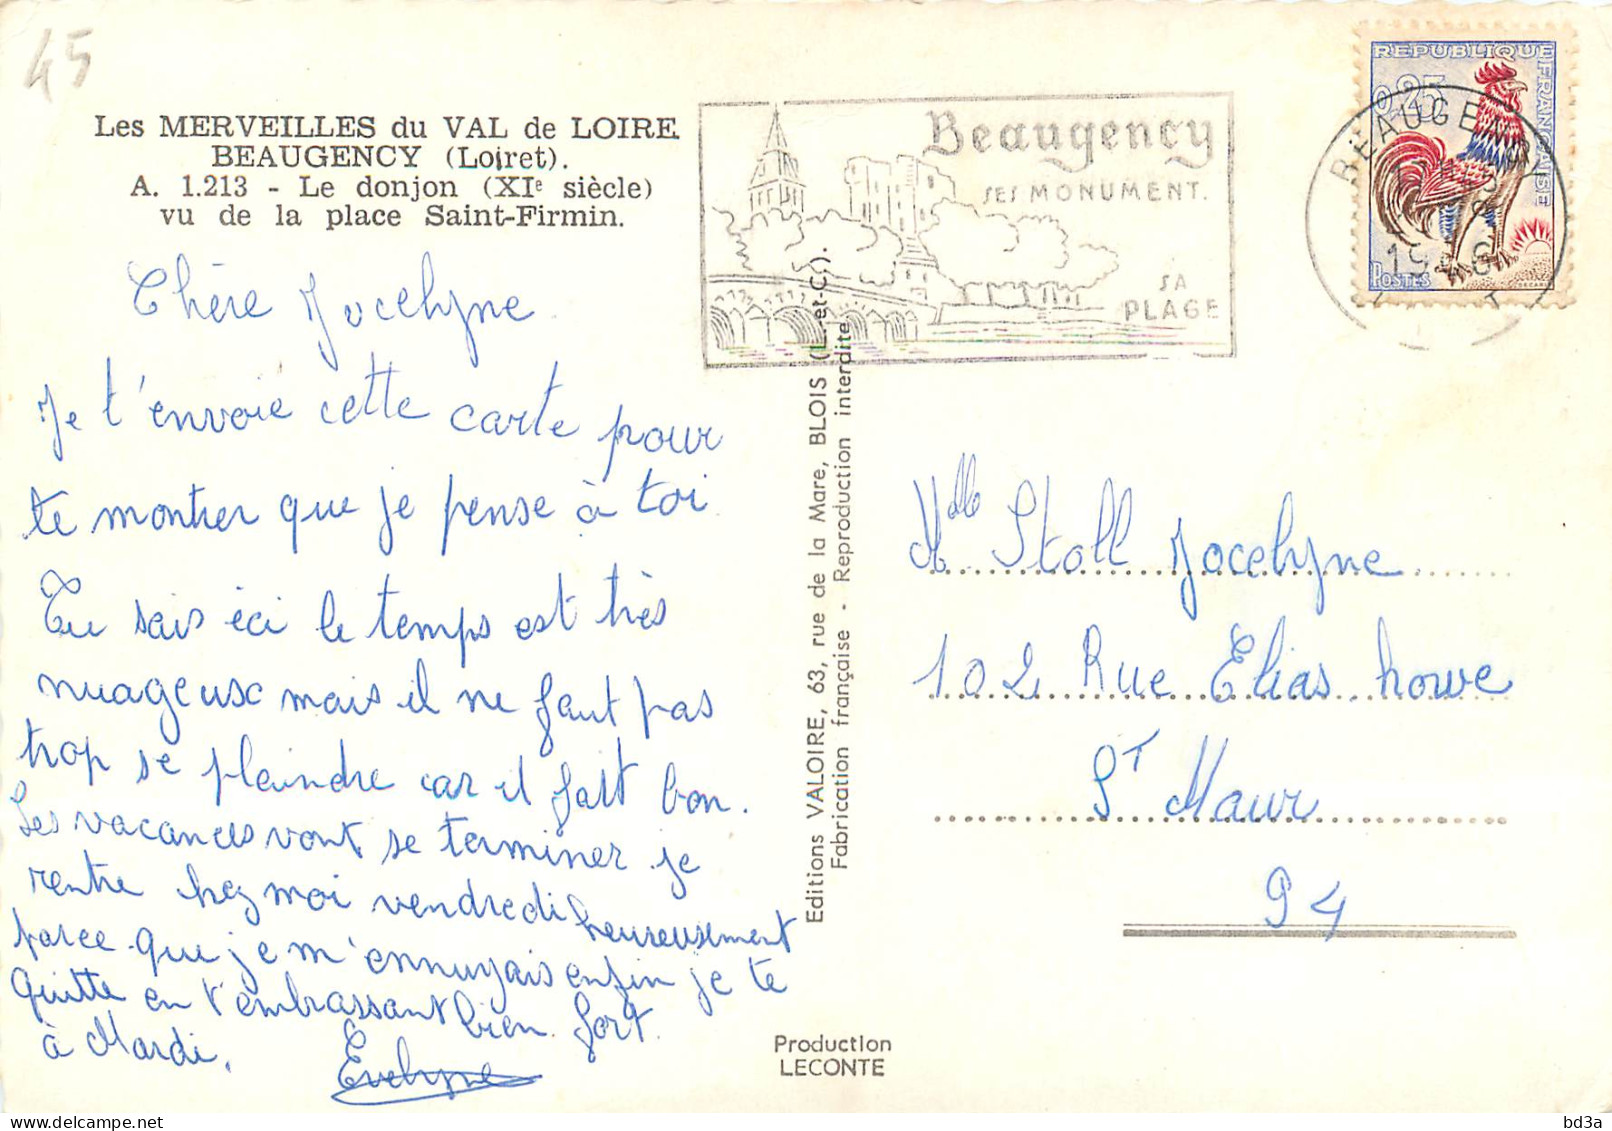 45
Les MERVEILLES du VAL de LOIRE
BEAUGENCY (Loiret).
A. 1.213 - Le donjon (XIe siècle)
vu de la place Saint-Firmin.
Chère Jocelyne
Je t'envoie cette carte pour
te montrer que je pense à toi
Tu sais ici le temps est très
nuageux mais il ne faut pas
trop se plaindre car il fait bon.
Les vacances vont se terminer je
rentre chez moi vendredi heureusement
parce que je m'ennuyais enfin je te
quitte en t'embrassant bien fort.
à Mardi.
Evelyne
Beaugency
SES MONUMENT.
SA
PLAGE
REPUBLIQUE FRANÇAISE
0,25
POSTES
DECARIS
BEAUGENCY
Editions VALOIRE, 63, rue de la Mare, BLOIS (L.-et-C.).
Fabrication française - Reproduction interdite
Mlle Stoll Jocelyne
102 Rue Elias howe
St Maur
94
Production
LECONTE
delcampe.net
bd3a